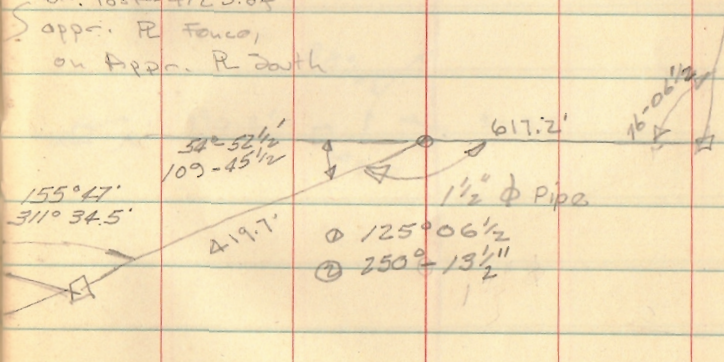 appr. PL Fence,
on Appr. PL South
617.2'
76-06 1/2
54°-52 1/2'
109-45 1/2'
155°47'
311° 34.5'
1 1/2" ϕ Pipe
419.7'
① 125° 06 1/2
② 250°-13 1/2"